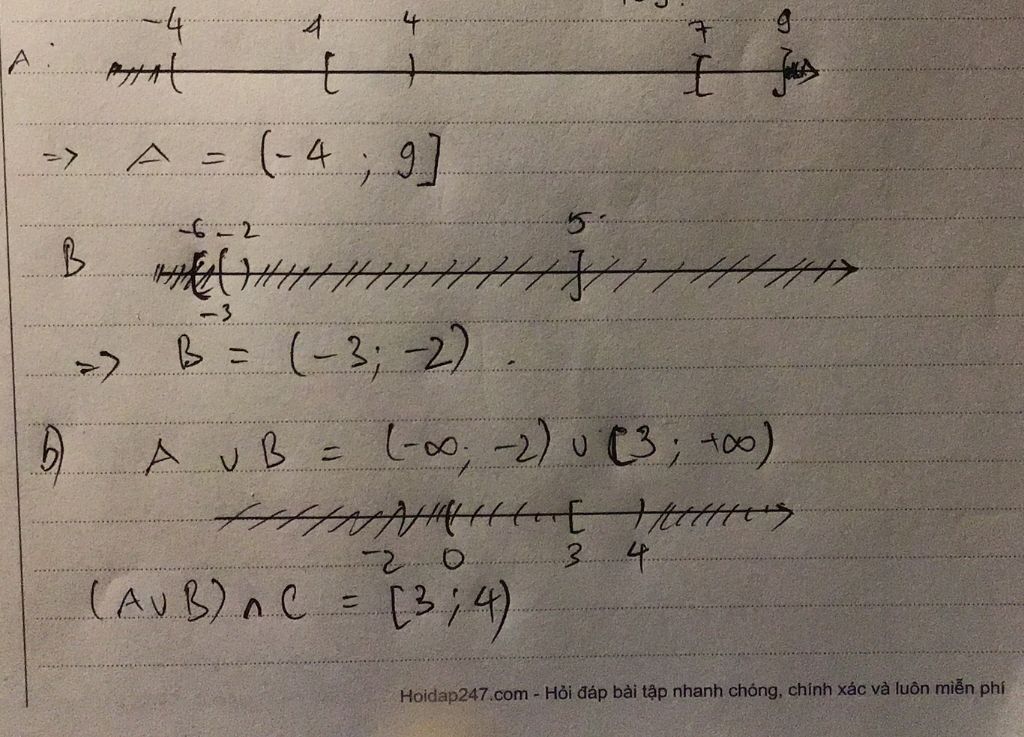 -4 1 4 7 9
A:
=> A = (-4 ; 9]
-6 -2 5
B
-3
=> B = (-3; -2) .
b) A ∪ B = (-∞; -2) ∪ [3 ; +∞)
-2 0 3 4
(A∪B) ∩ C = [3 ; 4)
Hoidap247.com - Hỏi đáp bài tập nhanh chóng, chính xác và luôn miễn phí